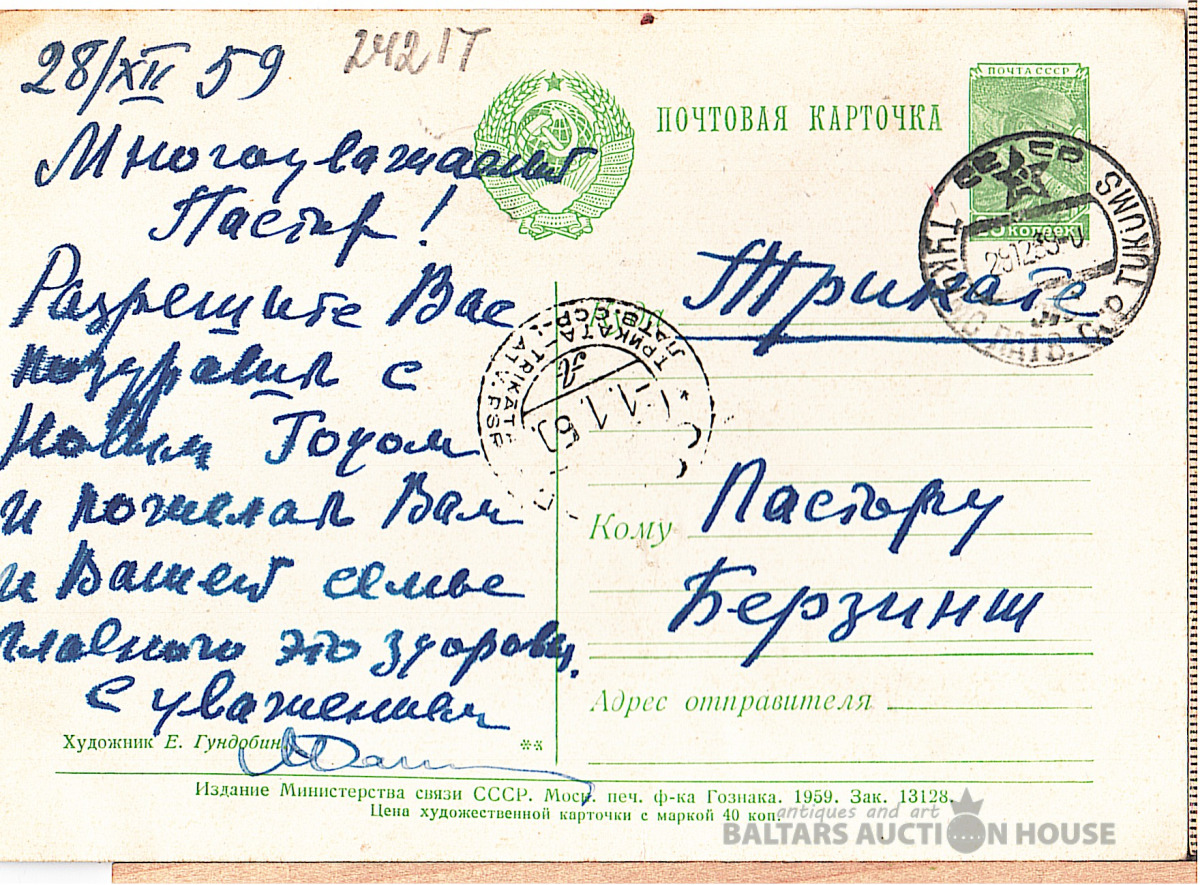 28/XII 59
2421T
ПОЧТОВАЯ КАРТОЧКА
ПОЧТА СССР
КОПЕЕК
Многоуважаемый
Пастор!
Разрешите Вас
поздравить с
Новым Годом
и пожелать Вам
и Вашей семье
главного это здоровья.
С уважением
Куда Трикате
Кому Пастору
Берзинш
Адрес отправителя
СССР
TUKUMS
29.12.59
ТРИКАТА
TRIKATA
Художник Е. Гундобин
**
Издание Министерства связи СССР. Моск. печ. ф-ка Гознака. 1959. Зак. 13128.
Цена художественной карточки с маркой 40 коп.
antiques and art
BALTARS AUCTION HOUSE